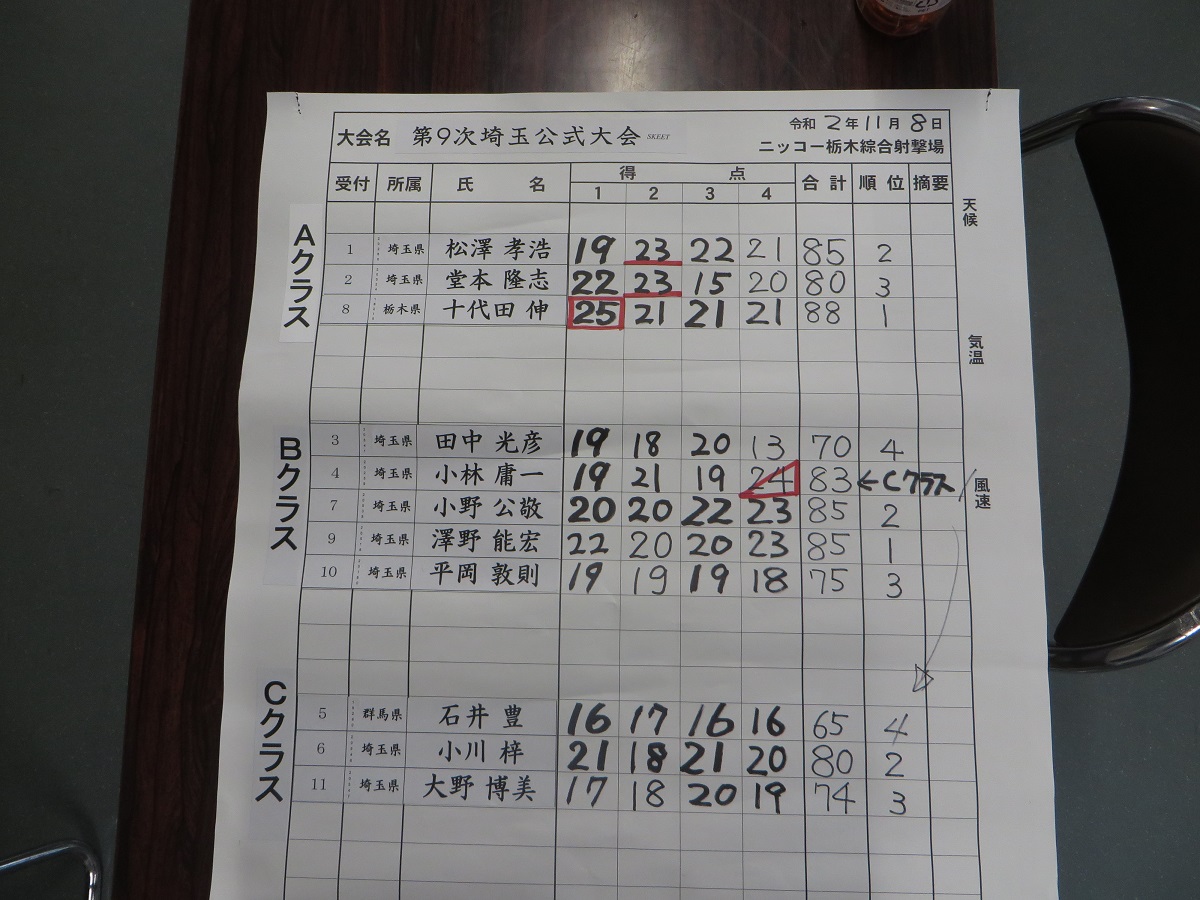 大会名 第9次埼玉公式大会 SKEET 令和2年11月8日
ニッコー栃木綜合射撃場
受付 所属 氏 名 得 点 合計 順位 摘要
1 2 3 4
天候
Aクラス
1 埼玉県 松澤 孝浩 19 23 22 21 85 2
2 埼玉県 堂本 隆志 22 23 15 20 80 3
8 栃木県 十代田 伸 25 21 21 21 88 1
気温
Bクラス
3 埼玉県 田中 光彦 19 18 20 13 70 4
4 埼玉県 小林 庸一 19 21 19 24 83 ←Cクラス
風速
7 埼玉県 小野 公敬 20 20 22 23 85 2
9 埼玉県 澤野 能宏 22 20 20 23 85 1
10 埼玉県 平岡 敦則 19 19 19 18 75 3
Cクラス
5 群馬県 石井 豊 16 17 16 16 65 4
6 埼玉県 小川 梓 21 18 21 20 80 2
11 埼玉県 大野 博美 17 18 20 19 74 3